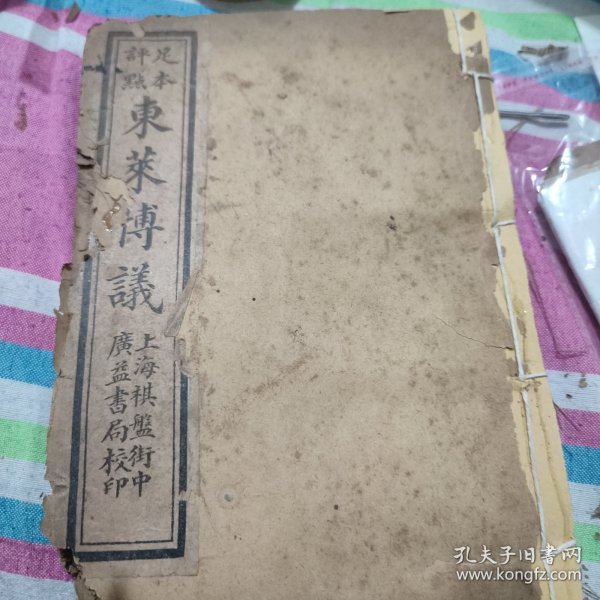 足本
評點
東萊博議
上海棋盤街中
廣益書局校印
孔夫子旧书网
www.kongfz.com